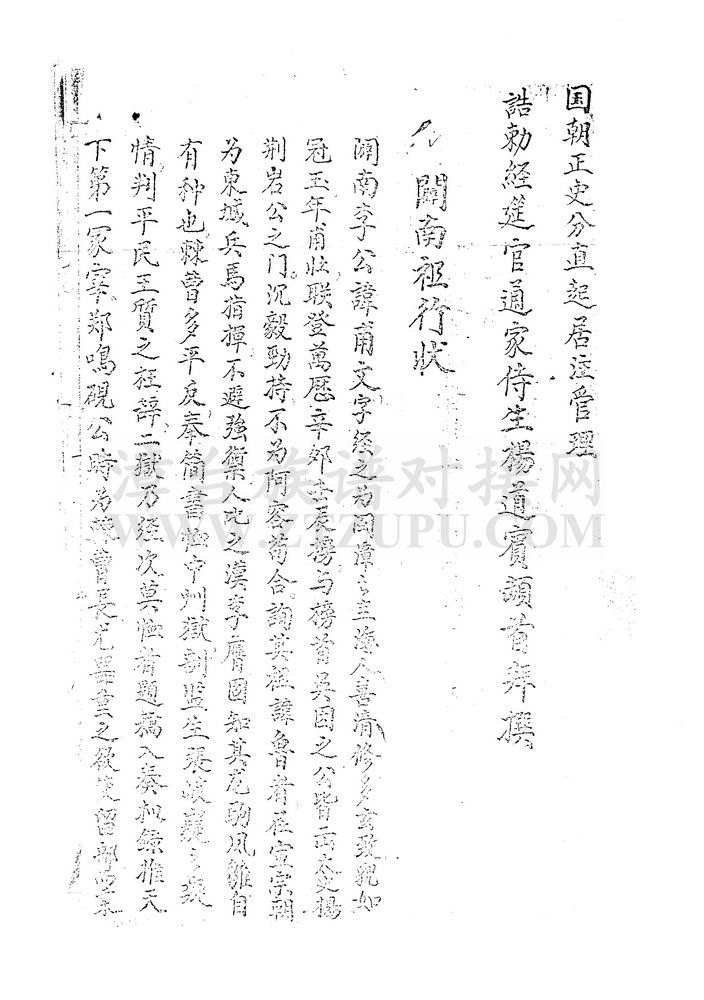 国朝正史分直起居注管理
誥勅経筵官通家侍生楊道賓頓首拜撰
閩南祖行狀
閩南李公諱甫文字经之为閩漳之主海人善清修多玄致貌如
冠玉年甫壯联登萬歷辛卯壬辰榜与榜首吳因之公皆出太史楊
荆岩公之门沉毅勁持不为阿容苟合詢其祖諱魯者在宣宗朝
为東城兵馬指揮不避強禦人比之漢李膺固知其龙駒凤雛自
有种也棘曹多平反奉簡書恤中州獄剖监生張
情判平民王質之枉辞二獄乃经次莫恤者題稿入奏和錄推天
下第一冢宰郑鳴硯公時为曹長尤器重之欲更留部
漳台族谱对接网
WWW.ZTZUPU.COM